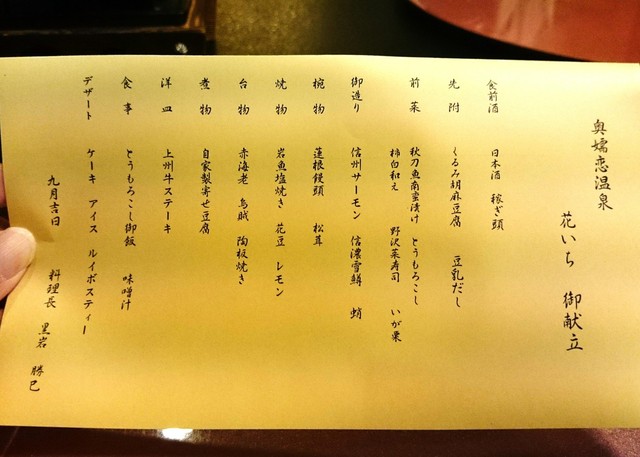 奥嬬恋温泉
花いち 御献立
食前酒 日本酒 稼ぎ頭
先附 くるみ胡麻豆腐 豆乳だし
前菜 秋刀魚南蛮漬け とうもろこし
柿白和え 野沢菜寿司 いが栗
御造り 信州サーモン 信濃雪鱒 蛸
椀物 蓮根饅頭 松茸
焼物 岩魚塩焼き 花豆 レモン
台物 赤海老 烏賊 陶板焼き
煮物 自家製寄せ豆腐
洋皿 上州牛ステーキ
食事 とうもろこし御飯 味噌汁
デザート ケーキ アイス ルイボスティー
九月吉日 料理長 黒岩 勝巳